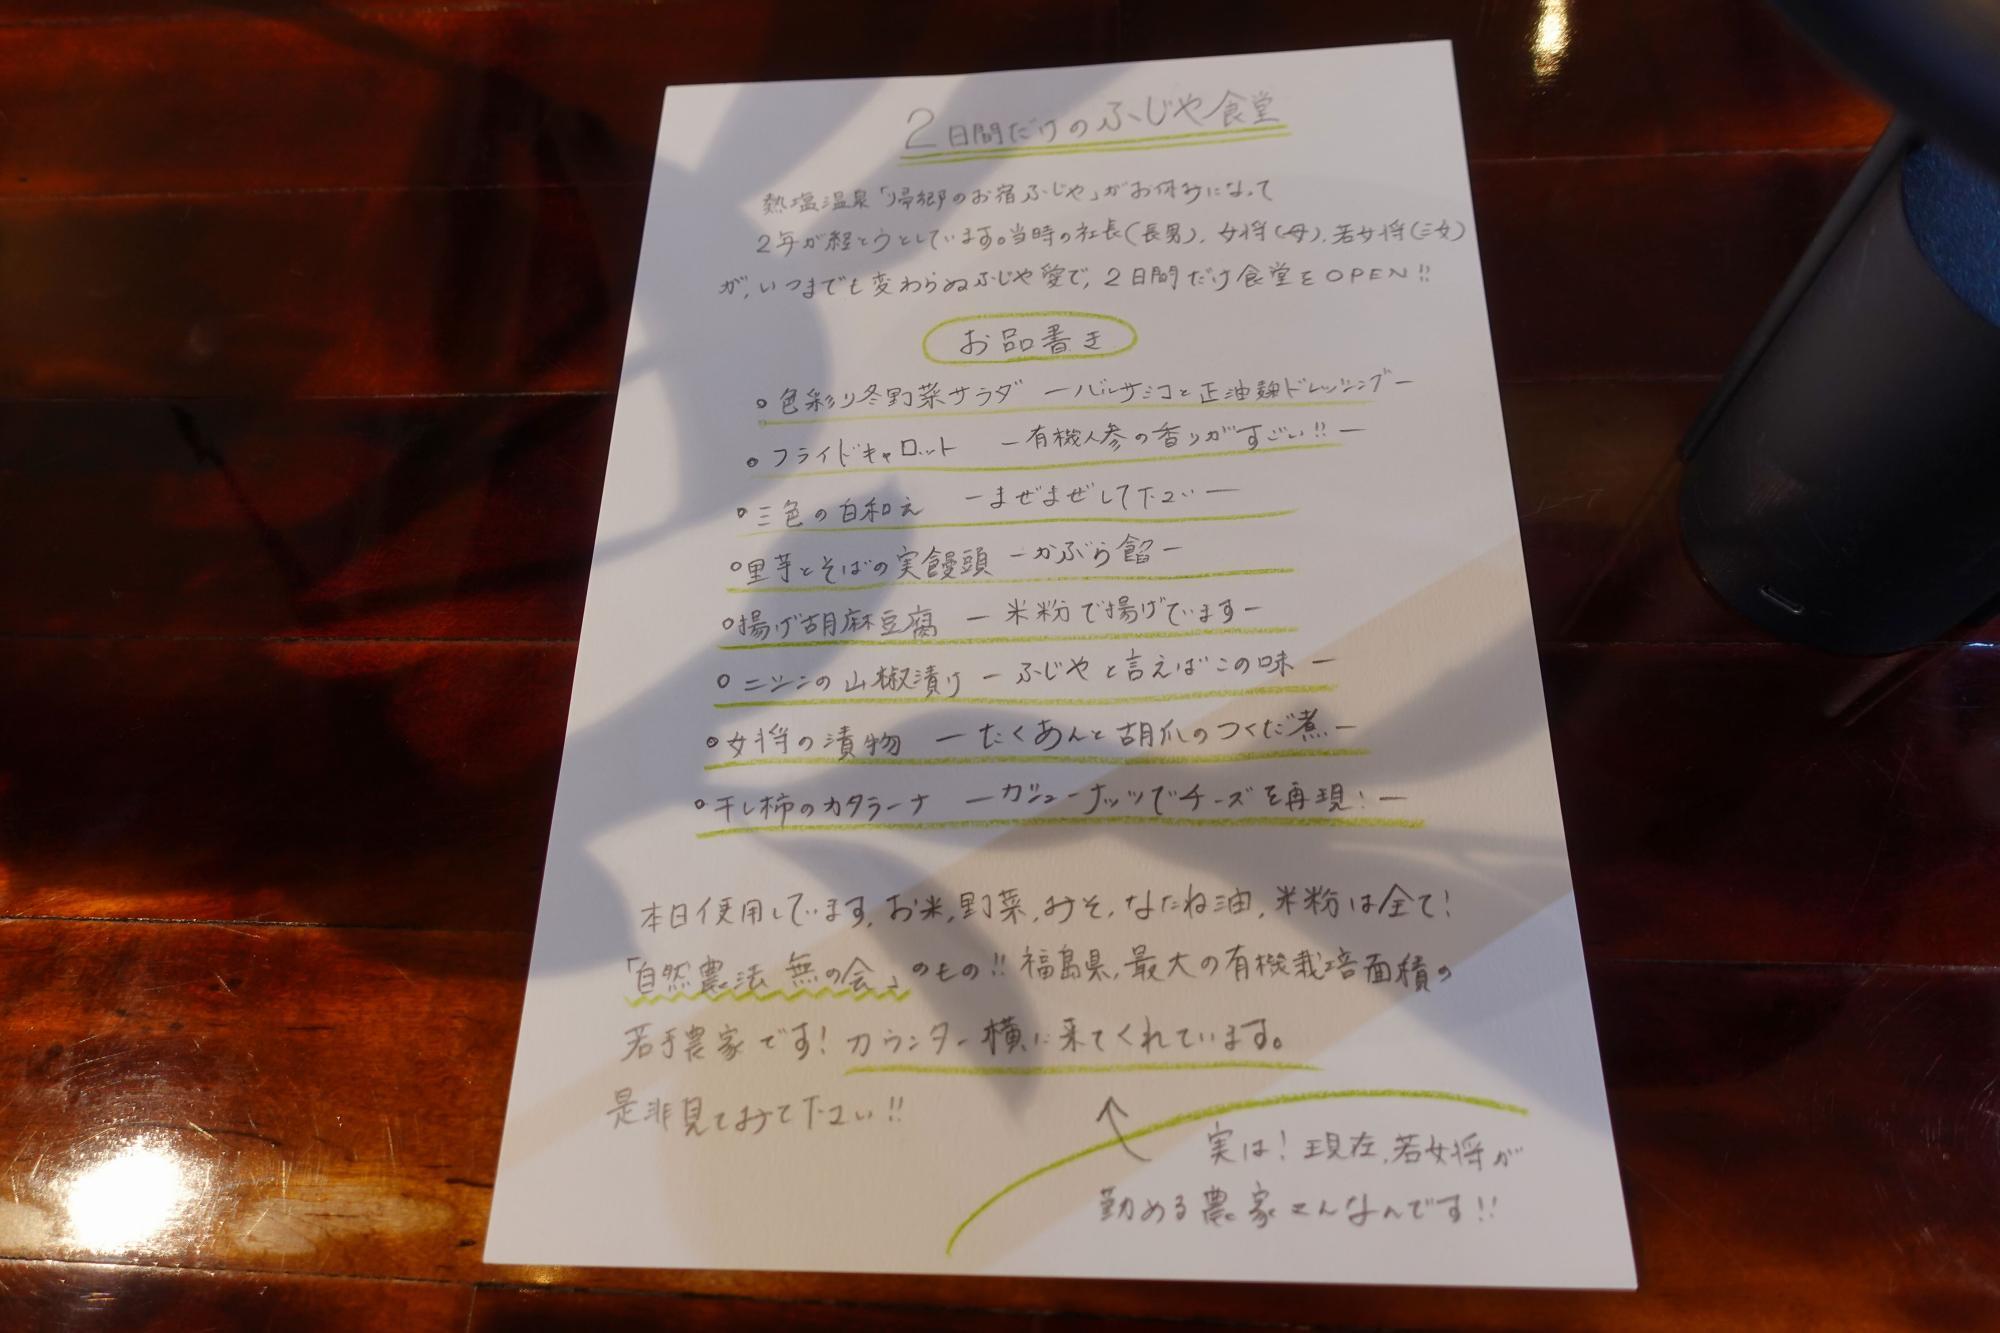 2日間だけのふじや食堂
熱塩温泉「帰郷のお宿ふじや」がお休みになって
2年が経とうとしています。当時の社長(長男)、女将(母)、若女将(三女)
が、いつまでも変わらぬふじや愛で、2日間だけ食堂をOPEN!!
お品書き
○色彩り冬野菜サラダ ーバルサミコと正油麹ドレッシングー
○フライドキャロット ー有機人参の香りがすごい!!ー
○三色の白和え ーまぜまぜして下さいー
○里芋とそばの実饅頭 ーかぶら餡ー
○揚げ胡麻豆腐 ー米粉で揚げていますー
○ニシンの山椒漬け ーふじやと言えばこの味ー
○女将の漬物 ーたくあんと胡瓜のつくだ煮ー
○干し柿のカタラーナ ーカシューナッツでチーズを再現!ー
本日使用しています、お米、野菜、みそ、なたね油、米粉は全て!
「自然農法 無の会」のもの!!福島県、最大の有機栽培面積の
若手農家です!カウンター横に来てくれています。
是非見てみて下さい!!
実は!現在、若女将が
勤める農家さんなんです!!